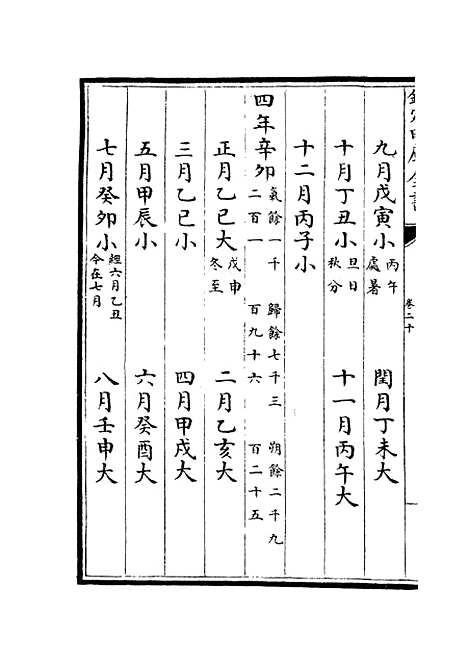 欽定四庫全書
卷二十
九月戊寅小 丙午處暑 閏月丁未大
十月丁丑小 旦日秋分 十一月丙午大
十二月丙子小
四年辛卯 氣餘一千二百一 歸餘七千三百九十六 朔餘二千九百二十五
正月乙巳大 戊申冬至 二月乙亥大
三月乙巳小 四月甲戌大
五月甲辰小 六月癸酉大
七月癸卯小 經六月乙丑今在七月 八月壬申大